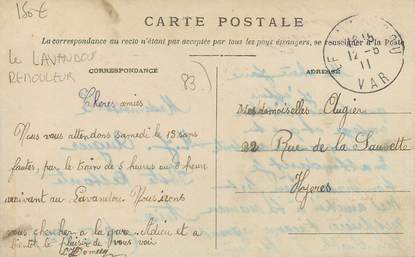 150€
CARTE POSTALE
La correspondance au recto n'étant pas acceptée par tous les pays étrangers, se renseigner à la Poste
Le LAVANDOU
REMOULEUR
83
CORRESPONDANCE
ADRESSE
12-5
11
VAR
Cheres amies
Nous vous attendons samedi le 13 sans
fautes, par le train de 5 heures au 6 heure
arrivant au Lavandou. Nous irons
vous chercher a la gare. Adieu et a
bientôt le plaisir de vous voir
Mesdemoiselles Augier
22 Rue de la Sauvette
Hyeres